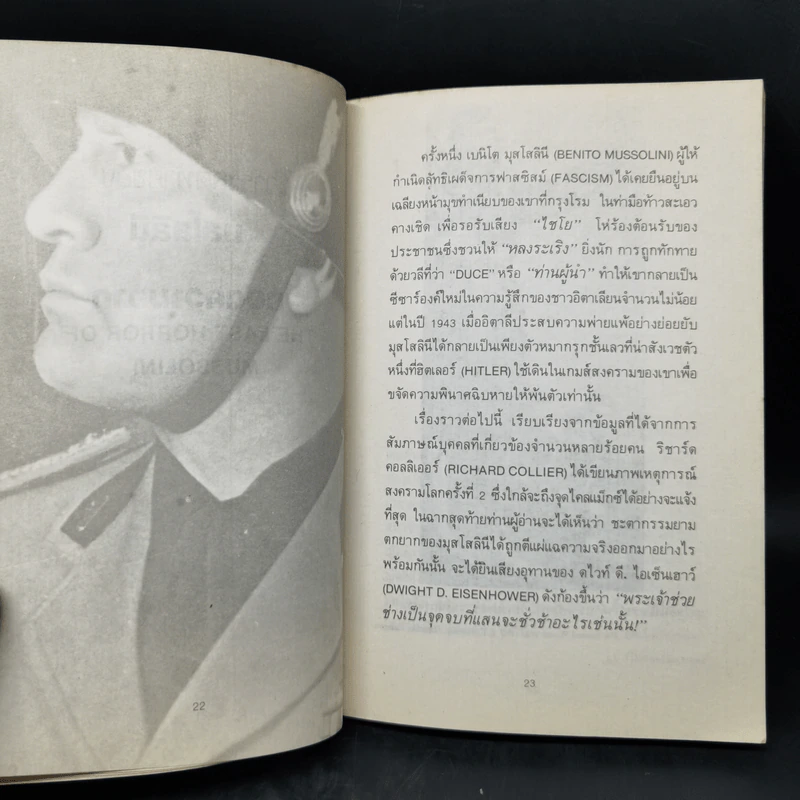 22
ครั้งหนึ่ง เบนิโต มุสโสลินี (BENITO MUSSOLINI) ผู้ให้
กำเนิดลัทธิเผด็จการฟาสซิสม์ (FASCISM) ได้เคยยืนอยู่บน
เฉลียงหน้ามุขทำเนียบของเขาที่กรุงโรม ในท่ามือท้าวสะเอว
คางเชิด เพื่อรอรับเสียง “ไชโย” โห่ร้องต้อนรับของ
ประชาชนซึ่งชวนให้ “หลงระเริง” ยิ่งนัก การถูกทักทาย
ด้วยวลีที่ว่า “DUCE” หรือ “ท่านผู้นำ” ทำให้เขากลายเป็น
ซีซาร์องค์ใหม่ในความรู้สึกของชาวอิตาเลียนจำนวนไม่น้อย
แต่ในปี 1943 เมื่ออิตาลีประสบความพ่ายแพ้อย่างย่อยยับ
มุสโสลินีได้กลายเป็นเพียงตัวหมากรุกชั้นเลวที่น่าสังเวชตัว
หนึ่งที่ฮิตเลอร์ (HITLER) ใช้เดินในเกมส์สงครามของเขาเพื่อ
ขจัดความพินาศฉิบหายให้พ้นตัวเท่านั้น
เรื่องราวต่อไปนี้ เรียบเรียงจากข้อมูลที่ได้จากการ
สัมภาษณ์บุคคลที่เกี่ยวข้องจำนวนหลายร้อยคน ริชาร์ด
คอลลิเออร์ (RICHARD COLLIER) ได้เขียนภาพเหตุการณ์
สงครามโลกครั้งที่ 2 ซึ่งใกล้จะถึงจุดไคลแม็กซ์ได้อย่างจะแจ้ง
ที่สุด ในฉากสุดท้ายท่านผู้อ่านจะได้เห็นว่า ชะตากรรมยาม
ตกยากของมุสโสลินีได้ถูกตีแผ่แฉความจริงออกมาอย่างไร
พร้อมกันนั้น จะได้ยินเสียงอุทานของ ดไวท์ ดี. ไอเซ็นเฮาว์
(DWIGHT D. EISENHOWER) ดังก้องขึ้นว่า “พระเจ้าช่วย
ช่างเป็นจุดจบที่แสนจะชั่วช้าอะไรเช่นนั้น!”
23